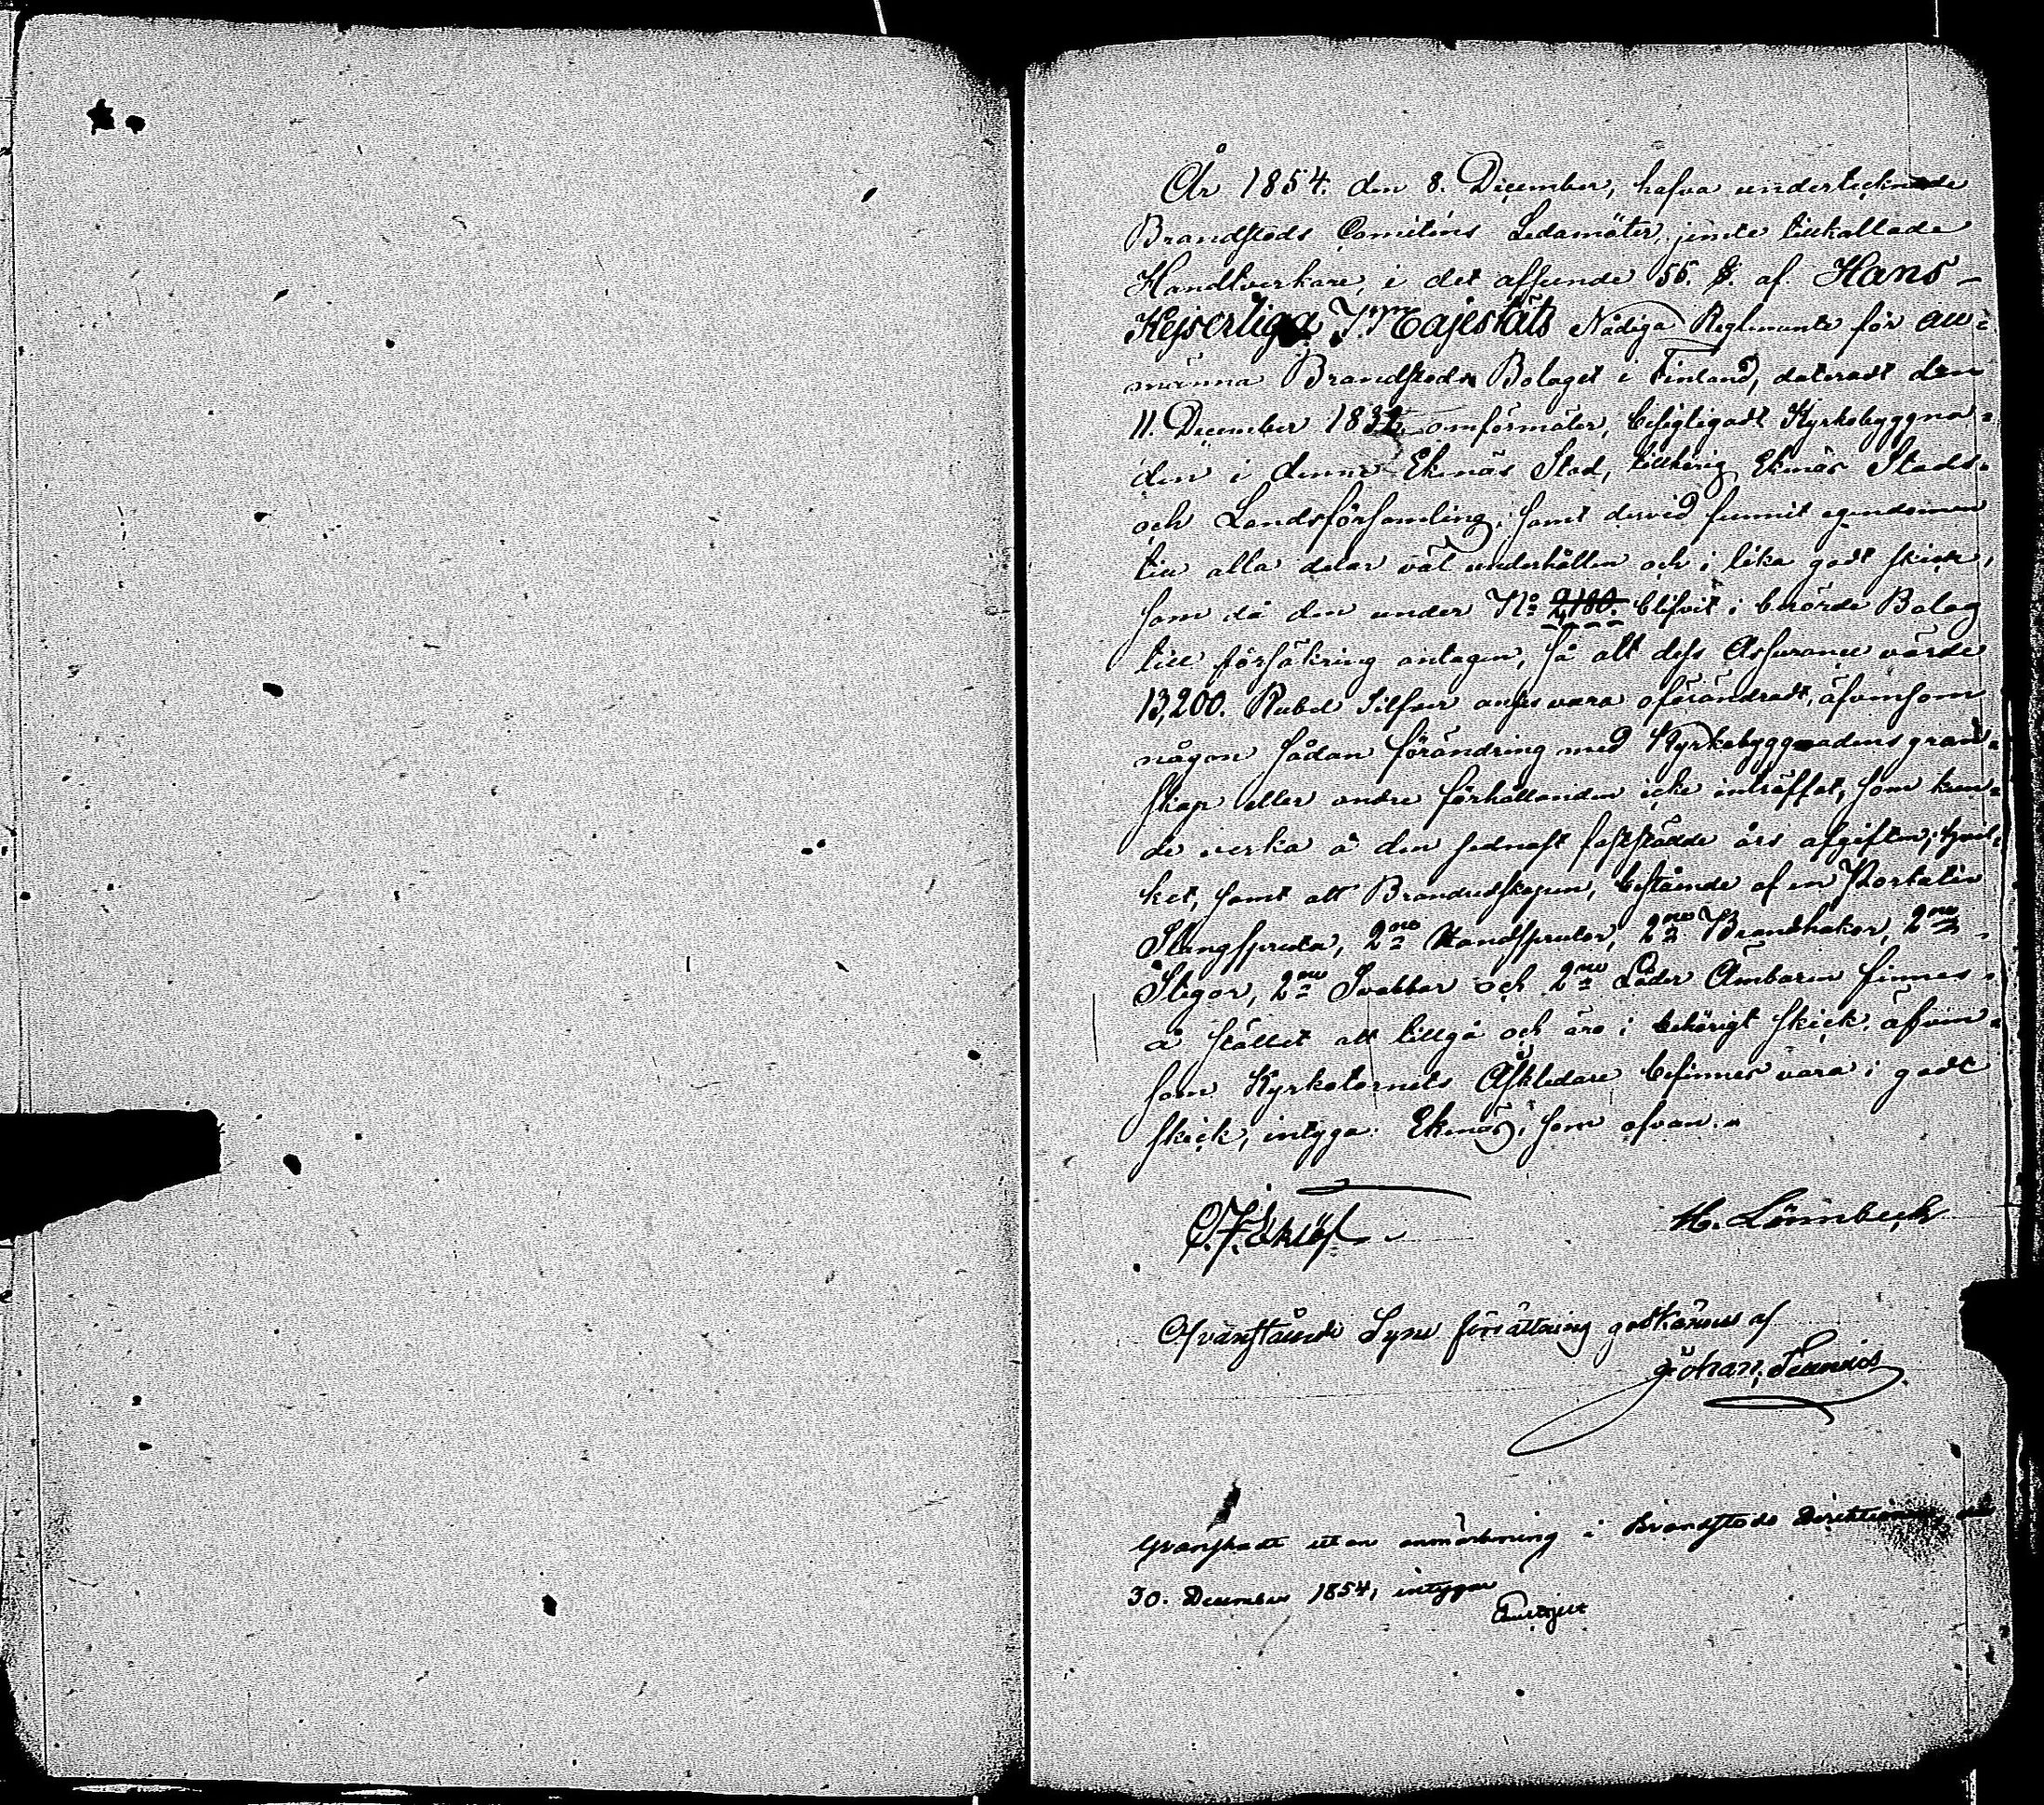 År 1854. den 8. December, hafva undertecknade
Brandstods Comitéens Ledamöter, jemte tillkallade
Handtverkare, i det afseende 55. §. af Hans
Kejserliga Majestäts Nådiga Reglemente för All-
männa Brandstods Bolaget i Finland, dateradt den
11. December 1832. omförmäler, besigtigadt Kyrkobyggna-
den i denne Ekenäs Stad, tillhörig Ekenäs Stads-
och Landsförsamling, samt dervid funnit egendomen
till alla delar väl underhållen och i lika godt skick,
som då den under No 2,180. blifvit i berörde Bolag
till försäkring antagen, så att dess Assurance värde
13,200. Rubel Silfver anses vara oförändradt, äfvensom
någon sådan förändring med Kyrkobyggnadens gran-
skap eller andre förhållanden icke inträffat, som kun-
de verka å den sednast fastställde års afgiften; hvil-
ket, samt att Brandredskapen, bestående af en Portativ
Slangspruta, 2ne Handsprutor, 2ne Brandhakar, 2ne
Stegar, 2ne Svabbar och 2ne Läder Ämbaren finnes
å stället att tillgå och äro i behörigt skick, äfven-
som Kyrkotornets Åskledare befinnes vara i godt
skick, intyga. Ekenäs, som ofvan.
C. F. Eklöf
H. Lönnbeck
Ofvanstående Syne förrättning godkännes af
Johan
Granskadt utan anmärkning i Brandstods Direktionen, den
30. December 1854, intygar